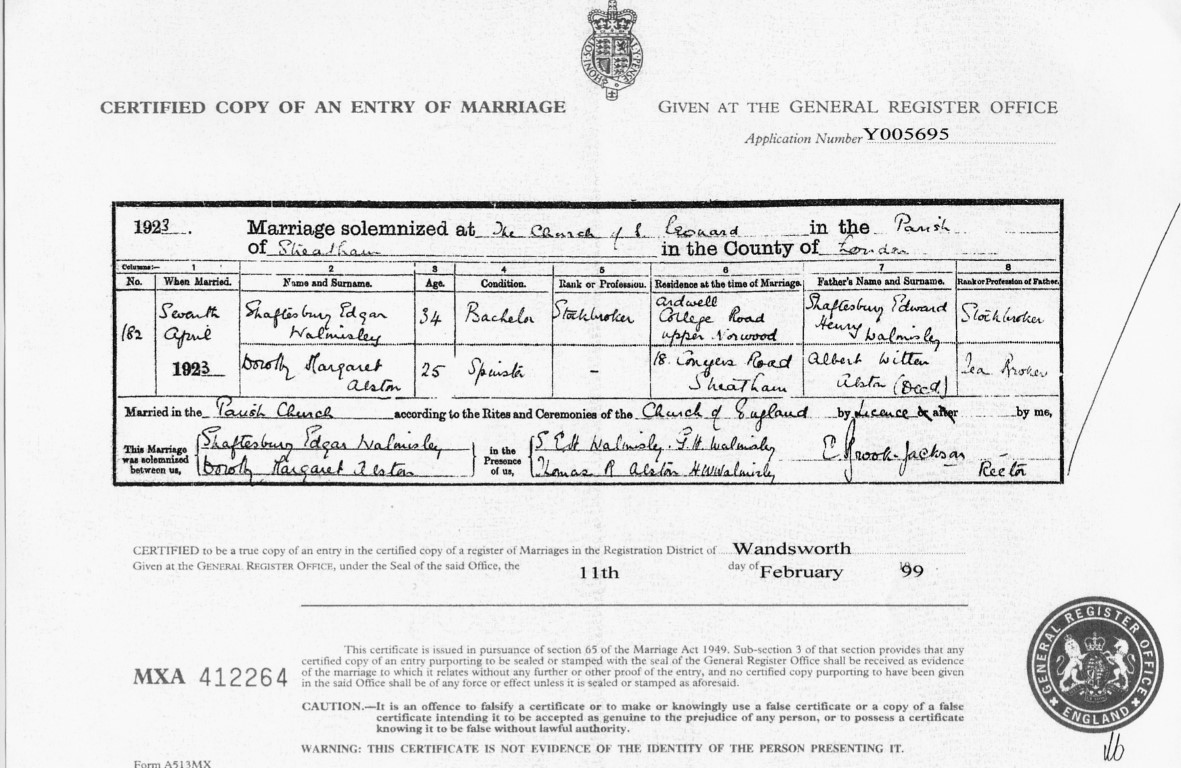 HONI SOIT QUI MAL Y PENSE
CERTIFIED COPY OF AN ENTRY OF MARRIAGE GIVEN AT THE GENERAL REGISTER OFFICE
Application Number Y005695
1923. Marriage solemnized at The Church of S. Leonard in the Parish
of Streatham in the County of London
Columns:— 1 2 3 4 5 6 7 8
No. When Married. Name and Surname. Age. Condition. Rank or Profession. Residence at the time of Marriage. Father's Name and Surname. Rank or Profession of Father.
182 Seventh April 1923 Shaftesbury Edgar Walmisley 34 Bachelor Stockbroker Ardwell College Road Upper Norwood Shaftesbury Edward Henry Walmisley Stockbroker
Dorothy Margaret Alston 25 Spinster – 18 Conyers Road Streatham Albert Witten Alston (Decd) Tea Broker
Married in the Parish Church according to the Rites and Ceremonies of the Church of England by Licence or after by me,
This Marriage was solemnized between us, Shaftesbury Edgar Walmisley Dorothy Margaret Alston in the Presence of us, S. E. H. Walmisley. F. H. Walmisley Thomas R Alston H W Walmisley Brook-Jackson Rector
CERTIFIED to be a true copy of an entry in the certified copy of a register of Marriages in the Registration District of Wandsworth
Given at the GENERAL REGISTER OFFICE, under the Seal of the said Office, the 11th day of February 99
This certificate is issued in pursuance of section 65 of the Marriage Act 1949. Sub-section 3 of that section provides that any
certified copy of an entry purporting to be sealed or stamped with the seal of the General Register Office shall be received as evidence
of the marriage to which it relates without any further or other proof of the entry, and no certified copy purporting to have been given
in the said Office shall be of any force or effect unless it is sealed or stamped as aforesaid.
MXA 412264
CAUTION.—It is an offence to falsify a certificate or to make or knowingly use a false certificate or a copy of a false
certificate intending it to be accepted as genuine to the prejudice of any person, or to possess a certificate
knowing it to be false without lawful authority.
WARNING: THIS CERTIFICATE IS NOT EVIDENCE OF THE IDENTITY OF THE PERSON PRESENTING IT.
GENERAL REGISTER OFFICE
ENGLAND
Form A513MX